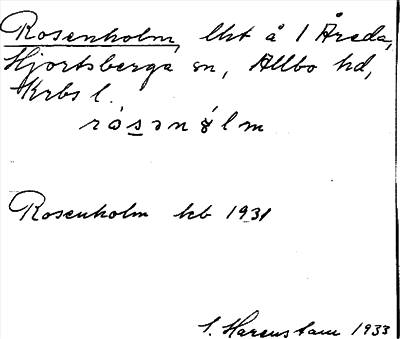 Rosenholm, lht å 1 Åreda,
Hjortsberga sn, Allbo hd,
Krbs l.
Rosenholm kb 1931
S. Harenstam 1933